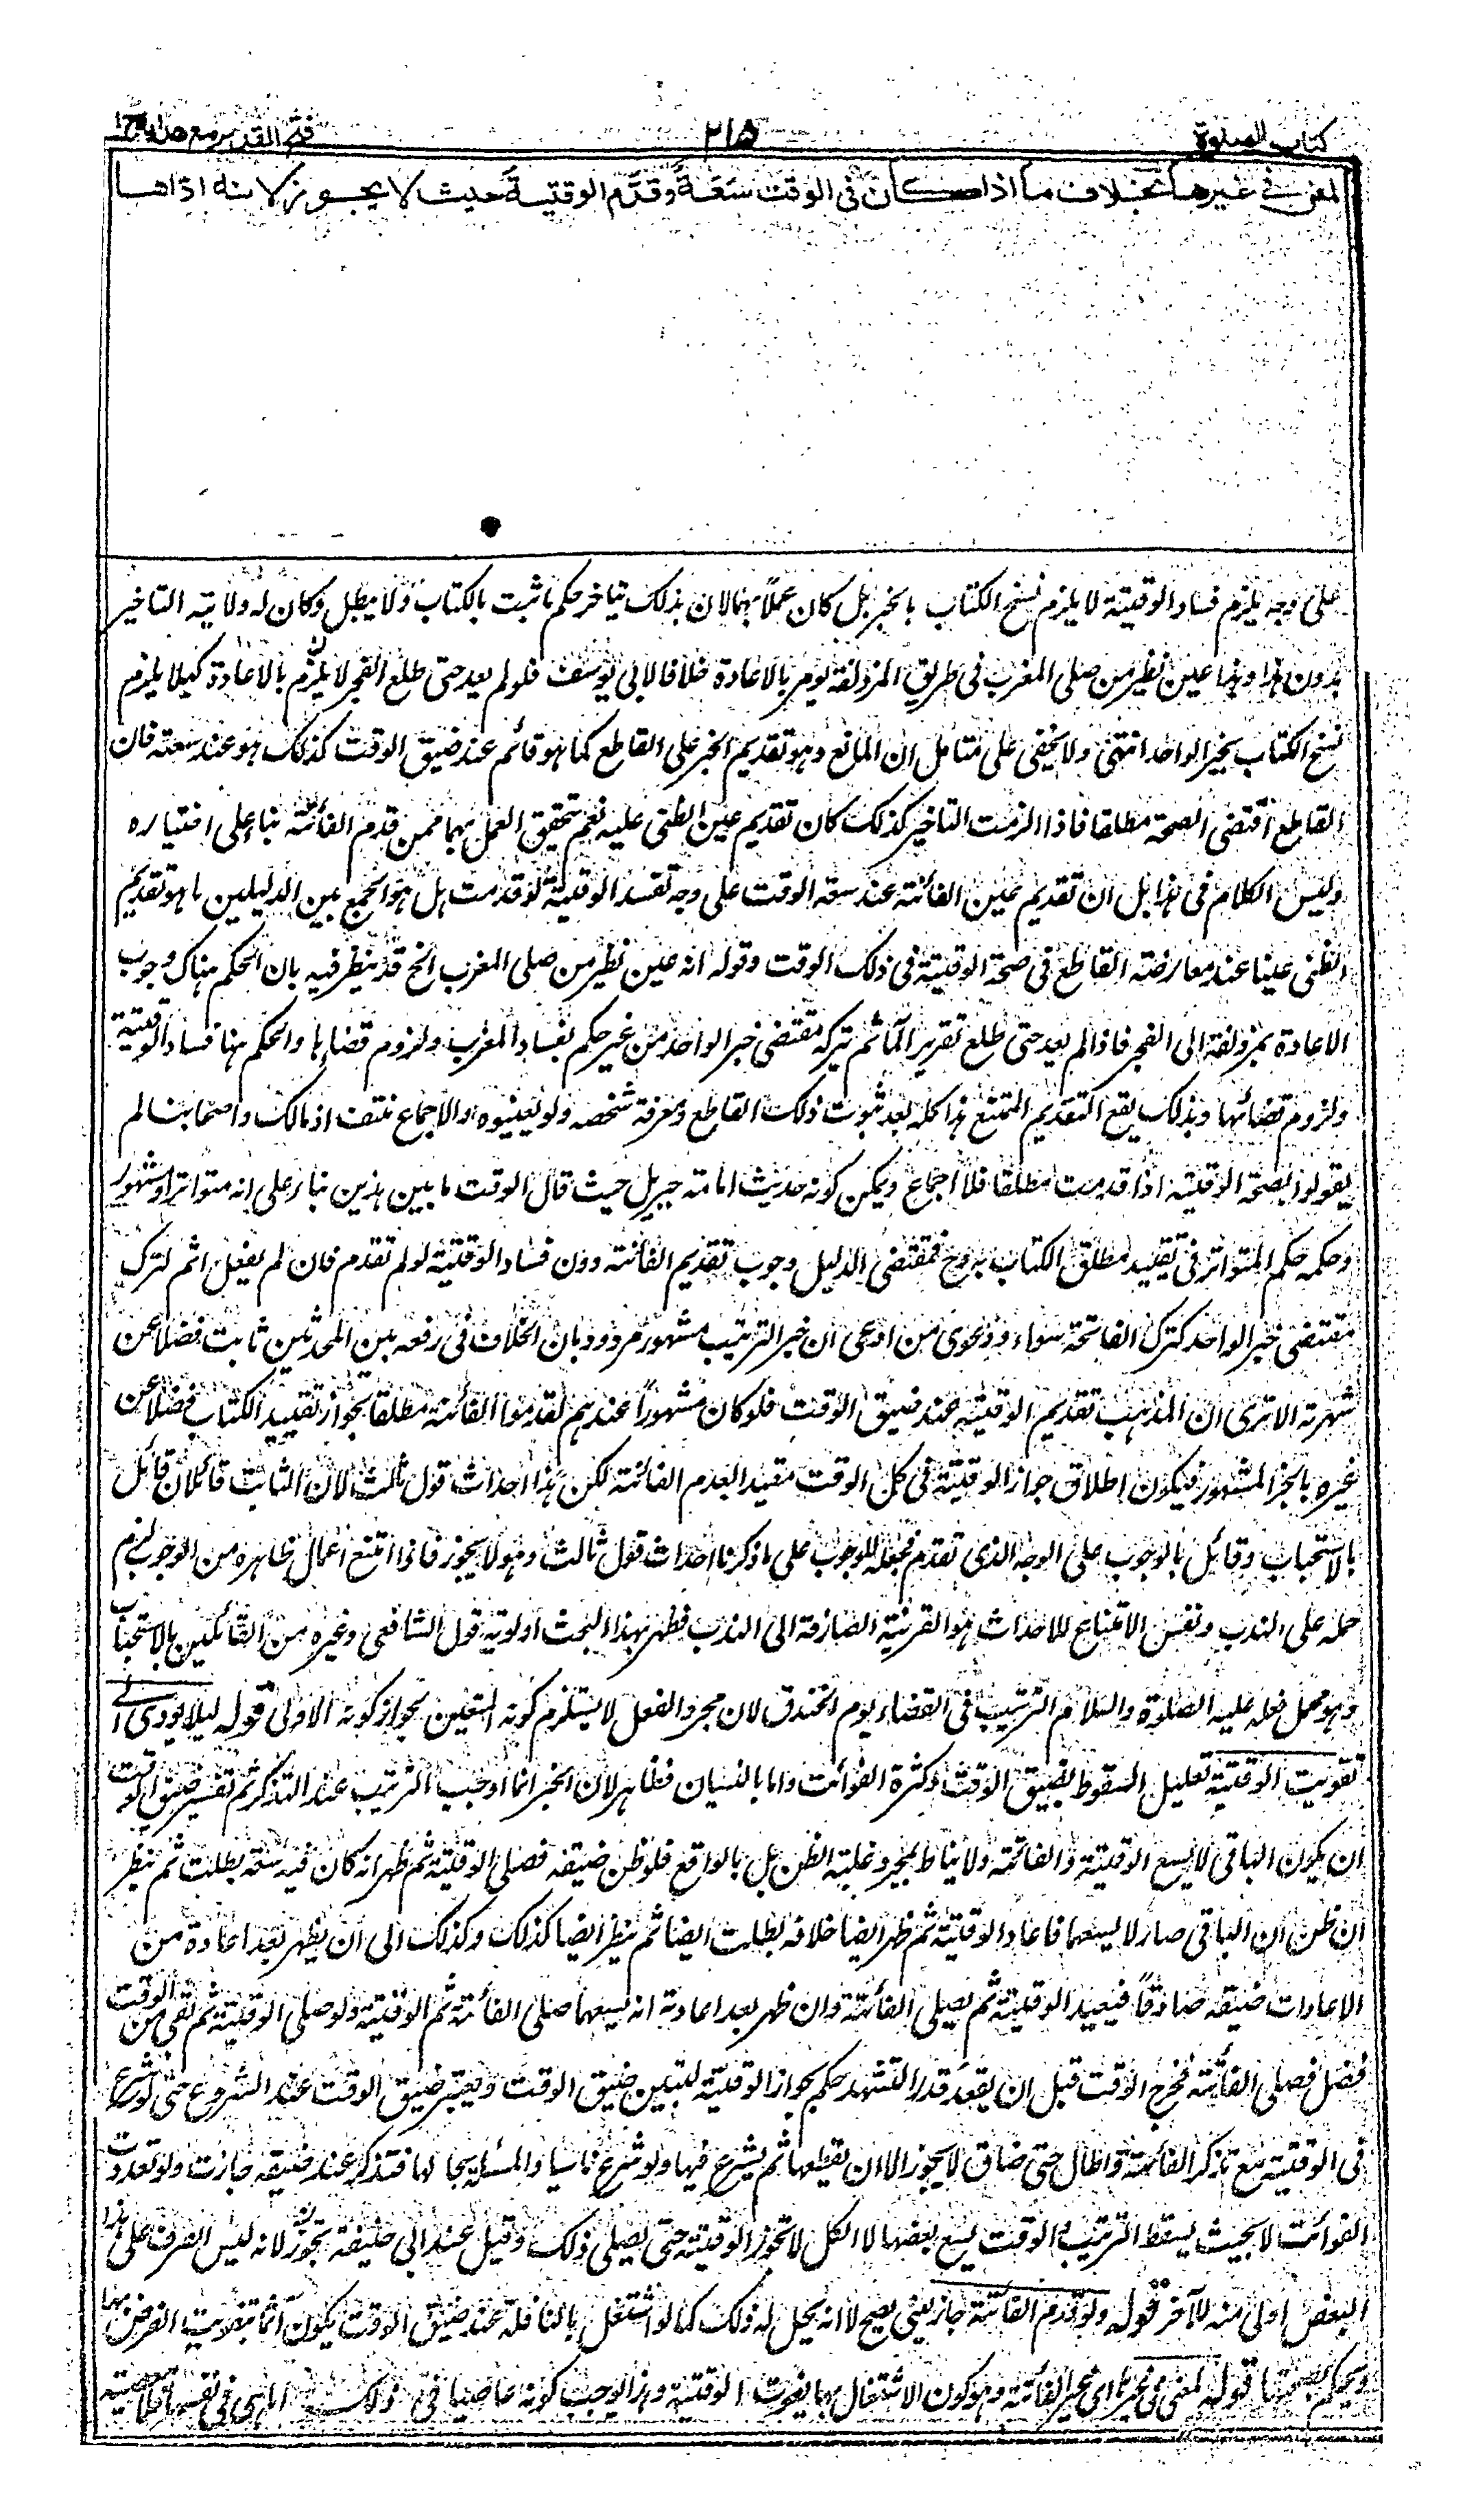 كتاب الصلوة
٢١٥
فتح القدير مع هداية ج١
لمعنى في غيرها بخلاف ما اذا كان فى الوقت سَعَةٌ وقدَّم الوقتيةَ حيث لا يجوز لانه ادّاها
على وجه يلزم فساد الوقتية لا يلزم نسخ الكتاب بالخبر بل كان عملًا بهما لان بذلك يتاخر حكم ما ثبت بالكتاب ولا يبطل وكان له ولاية التاخير
بدون هذا وهذا عين نظير من صلى المغرب فى طريق المزدلفة يومر بالاعادة خلافا لابي يوسف فلو لم يعد حتى طلع الفجر لا يلزم بالاعادة كيلا يلزم
نسخ الكتاب بخبر الواحد انتهى ولا يخفى على متامل ان المانع وهو تقديم الخبر على القاطع كما هو قائم عند ضيق الوقت كذلك هو عند سعته فان
القاطع اقتضى الصحة مطلقا فاذا الزمت التاخير كذلك كان تقديم عين الظنى عليه نعم تحقيق العمل بهما ممن قدم الفائتة بناء على اختياره
وليس الكلام فى هذا بل ان تقديم عين الفائتة عند سعة الوقت على وجه تفسد الوقتية لو قدمت هل هو الجمع بين الدليلين ما هو تقديم
الظنى عينا عند معارضته القاطع فى صحة الوقتية فى ذلك الوقت وقوله انه عين نظير من صلى المغرب الخ قد ينظر فيه بان الحكم هناك وجوب
الاعادة بمزدلفة الى الفجر فاذا لم يعد حتى طلع تقرير المآثم بتركه مقتضى خبر الواحد من غير حكم بفساد المغرب ولزوم قضائها والحكم هنا فساد الوقتية
ولزوم قضائها وبذلك يقع التقديم الممتنع هذا كله بعد ثبوت ذلك القاطع ومعرفة شخصه ولو يعينوه والاجماع منتف اذ مالك واصحابنا لم
يقولوا بصحة الوقتية اذا قدمت مطلقا فلا اجماع ويمكن كونه حديث امامة جبريل حيث قال الوقت ما بين هذين بناء على انه متواتر او مشهور
وحكمه حكم المتواتر فى تقييد مطلق الكتاب به وح فمقتضى الدليل وجوب تقديم الفائتة دون فساد الوقتية لو لم تقدم فان لم يفعل اثم لترك
مقتضى خبر الواحد كترك الفاتحة سواء ودعوى من ادعى ان خبر الترتيب مشهور مردود بان الخلاف فى رفعه بين المحدثين ثابت فضلا عن
شهرته الا ترى ان المذهب تقديم الوقتية عند ضيق الوقت فلو كان مشهورًا عندهم لقدموا الفائتة مطلقا بجواز تقييد الكتاب فضلا عن
غيره بالخبر المشهور فيكون اطلاق جواز الوقتية فى كل الوقت مقيد العدم الفائتة لكن هذا احداث قول ثالث لان الثابت قائلان قائل
بالاستحباب وقائل بالوجوب على الوجه الذى تقدم فجعله للوجوب على ما ذكرنا احداث قول ثالث وهو لا يجوز فاذا امتنع اعمال ظاهره من الوجوب لزم
حمله على الندب ونفس الامتناع للاحداث هو القرينة الصارفة الى الندب فظهر بهذا البحث اولوية قول الشافعى وغيره من القائلين بالاستحباب
وهو محمل فعله عليه الصلوة والسلام الترتيب فى القضاء يوم الخندق لان مجرد الفعل لا يستلزم كونه المتعين بجواز كونه الاولى قوله ليلا يودى الى
تفويت الوقتية تعليل السقوط بضيق الوقت وكثرة الفوائت واما بالنسيان فظاهر لان الخبر انما اوجب الترتيب عند التذكر ثم تفسير ضيق الوقت
ان يكون الباقى لا يسع الوقتية والفائتة ولا يناط بمجرد غلبة الظن بل بالواقع فلو ظن ضيقه فصلى الوقتية ثم ظهر انه كان فيه سعة بطلت ثم ينظر
ان ظن ان الباقى صار لا يسعهما فاعاد الوقتية ثم ظهر ايضا خلافه بطلت ايضا ثم ينظر ايضا كذلك وكذلك الى ان يظهر بعد اعادة من
الاعادات ضيقه صادقًا فيعيد الوقتية ثم يصلى الفائتة وان ظهر بعد اعادته انه يسعهما صلى الفائتة ثم الوقتية ولو صلى الوقتية ثم بقى من الوقت
فضل فصلى الفائتة فخرج الوقت قبل ان يقعد قدر التشهد حكم بجواز الوقتية لتبين ضيق الوقت ويعتبر ضيق الوقت عند الشروع حتى لو شرع
فى الوقتية مع تذكر الفائتة واطال حتى ضاق لا يجوز الا ان يقطعها ثم يشرع فيها ولو شرع ناسيا والمسئلة بحالها فتذكر عند ضيقه جازت ولو تعددت
الفوائت لا بحيث يسقط الترتيب والوقت يسع بعضها لا الكل لا تجوز الوقتية حتى يصلى ذلك وقيل عند ابى حنيفة تجوز لانه ليس الصرف على هذا
البعض اولى منه للآخر قوله ولو قدم الفائتة جاز يعنى يصح لا انه يحل له ذلك كما لو اشتغل بالنافلة عند ضيق الوقت يكون آثما بتفويت الفرض بها
ويحكم بصحتها قوله لمعنى فى غيرها اى غير الفائتة وهو كون الاشتغال بها يفوت الوقتية وهذا يوجب كونه عاصيا فى ذلك اما هى فى نفسها فلا معصية